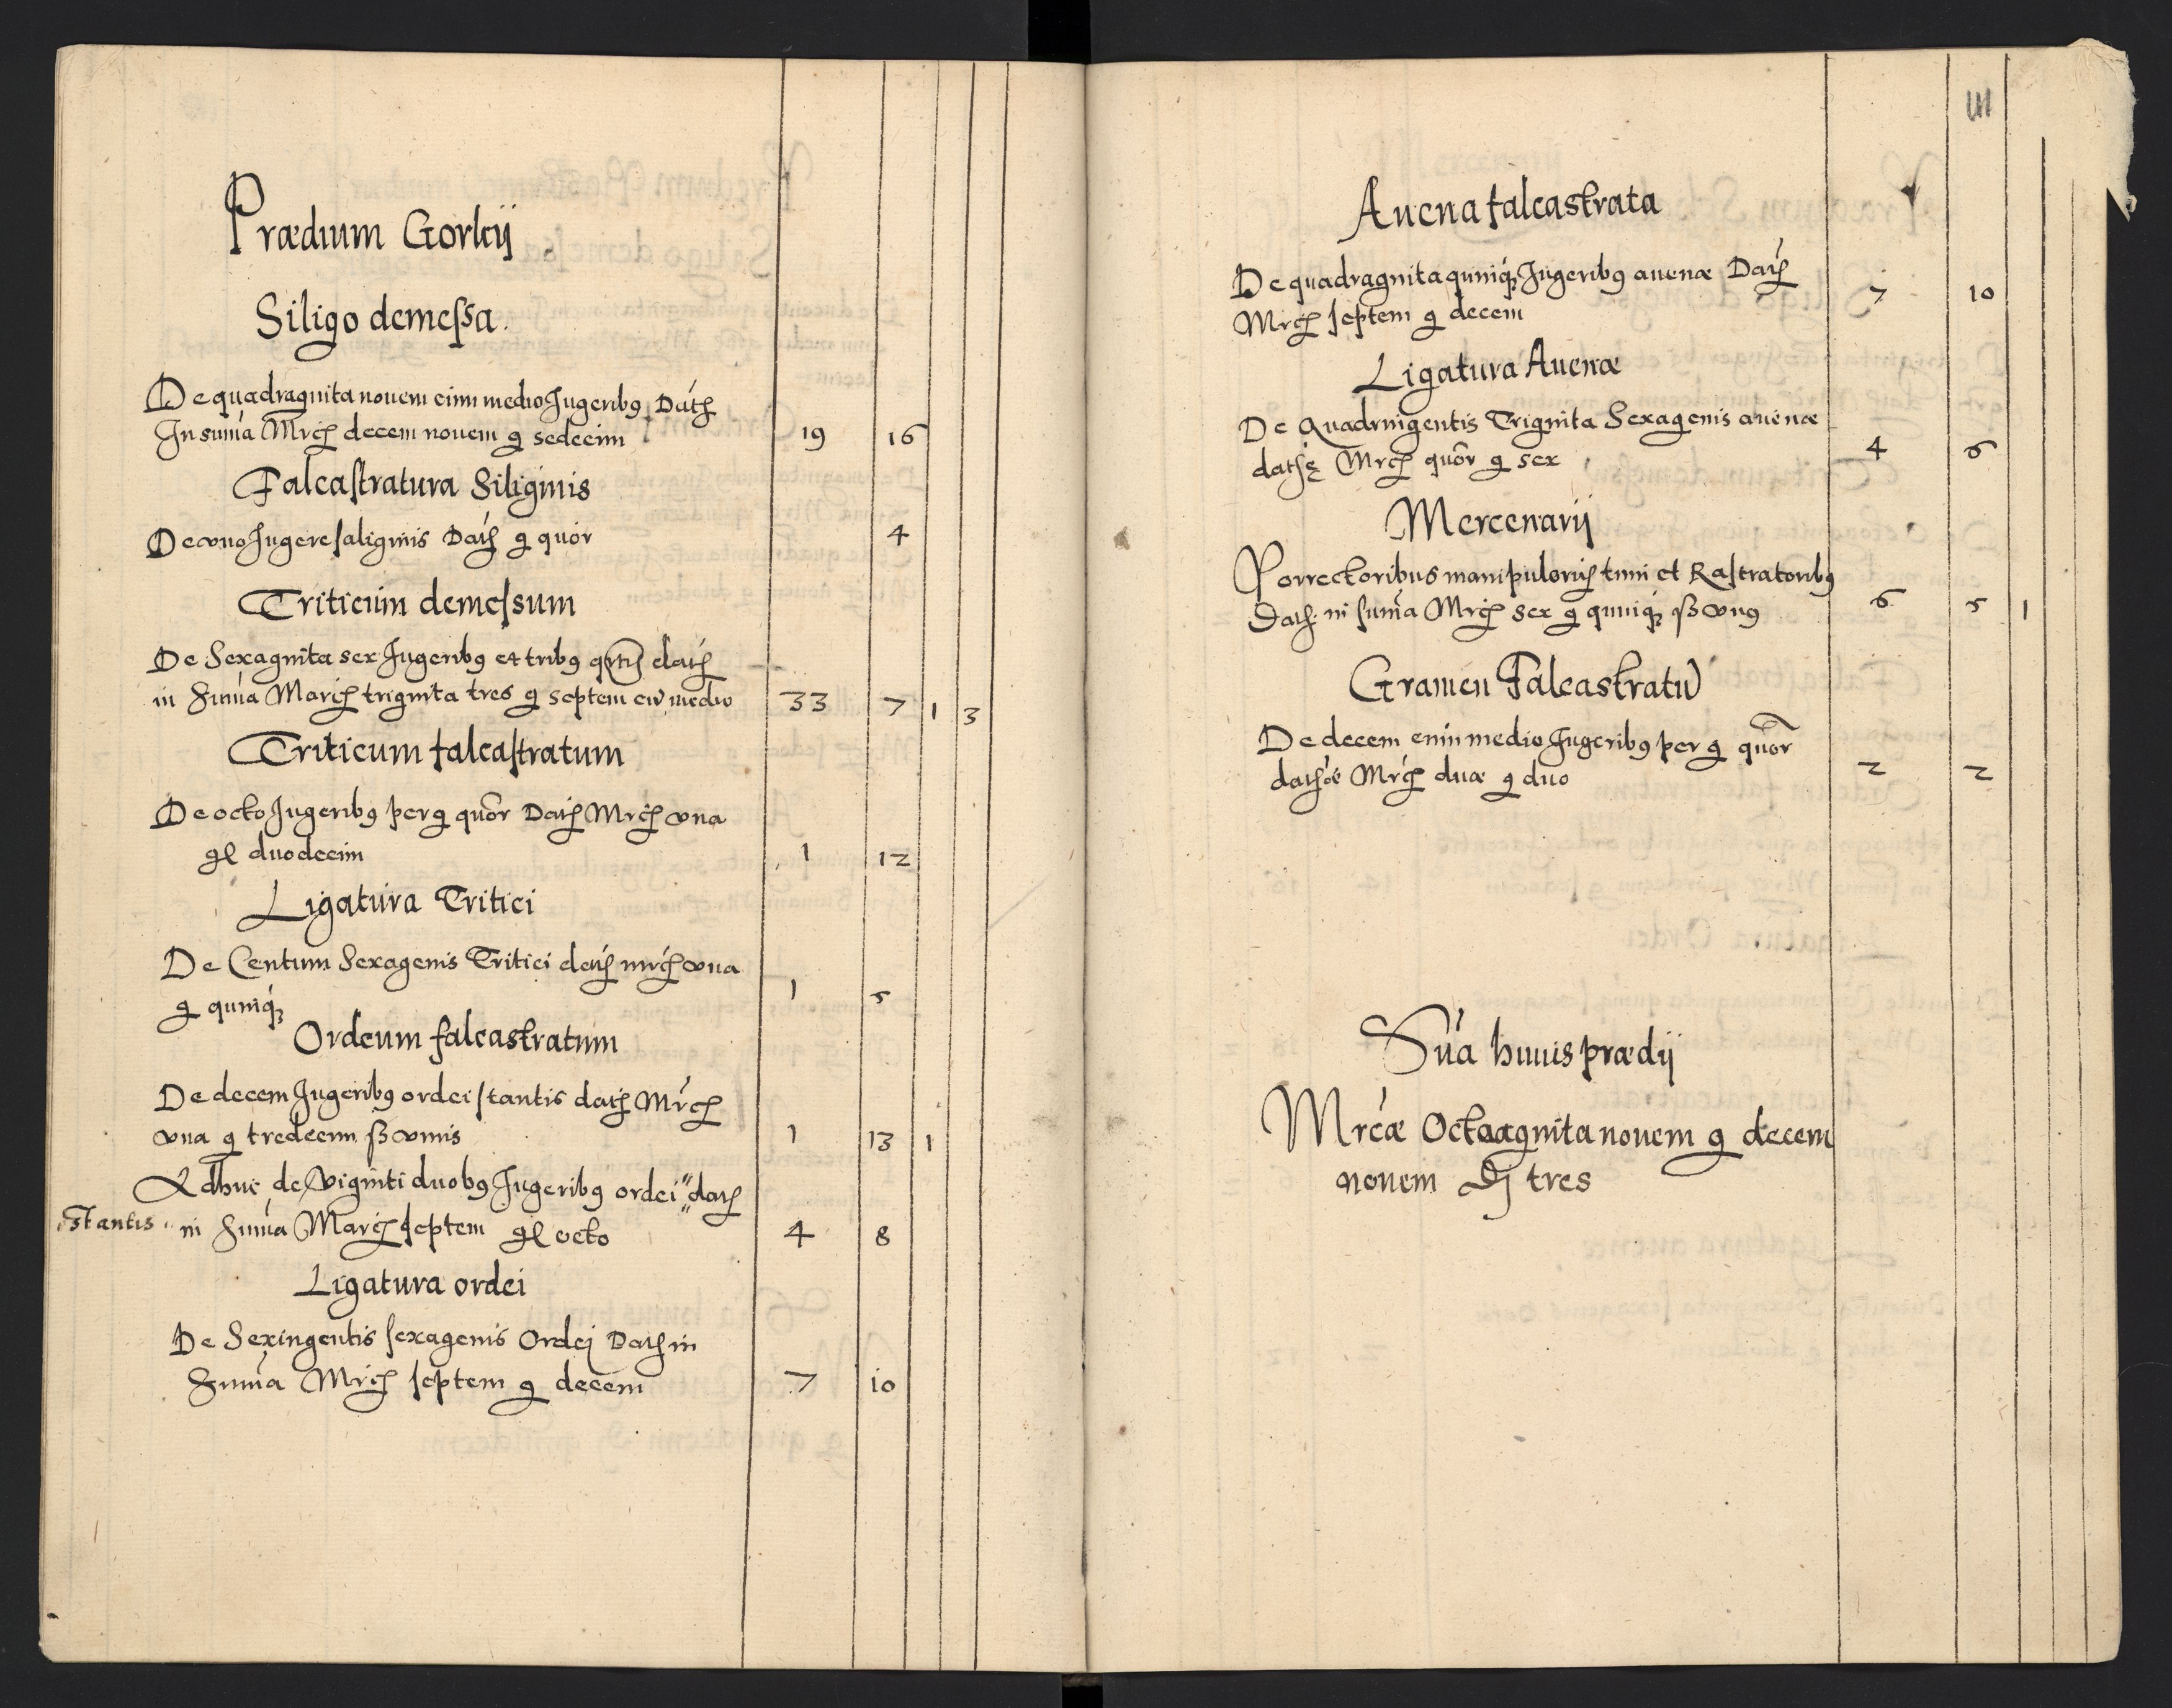 Prædium Gorkij
Siligo demeſsa.
De quadraginta novem cum medio Jugeribꝯ Datꝭ
In suma Mrcꝭ decem novem g sedecim 19 16
Falcaſtratura Siliginis
De vno Jugere saliginis Datꝭ g quór 4
Triticum demeſsum
De Sexaginta sex Jugeribꝯ et tribꝯ qrtꝭ datꝭ
in Suma Marcꝭ triginta tres g septem cũ medio 33 7 1 3
Triticum falcaſtratum
De octo Jugeribꝯ per g quor Datꝭ Mrcꝭ vna
gl duodecim 1 12
Ligatura Tritici
De Centum Sexagenis Tritici datꝭ mrcꝭ vna
g quinqꝫ 1 5
Ordeum falcastratum
De decem Jugeribꝯ ordei ſtantis datꝭ Mrcꝭ
vna g tredecim ſß vnus 1 13 1
Adhuc de Viginti duobꝯ Jugeribꝯ ordei " datꝭ
stantis " in Suma Marcꝭ ſeptem gl octo 4 8
Ligatura ordei
De Sexingentis ſexagenis Ordej Datꝭ in
Suma Mrcꝭ ſeptem g decem 7 10
III
Auena falcastrata
De quadraginta quinqꝫ Jugeribꝯ auenæ Datꝭ
Mrcꝭ ſeptem g decem 7 10
Ligatura Auenæ
De Quadringentis Triginta Sexagenis auenæ
datæ Mrcꝭ quor g sex 4 6
Mercenarij
Porrectoribus manipulorũ tum et Raſtratoribꝯ
Datꝭ in ſuma Mrcꝭ sex g quinqꝫ ſß vnꝯ 6 5 1
Gramen Falcastratũ
De decem cum medio Jugeribꝯ per g quor
datæ Mrcꝭ duæ g duo 2 2
Sũa huius prædij
Mrcæ Octaaginta novem g decem
novem đ tres